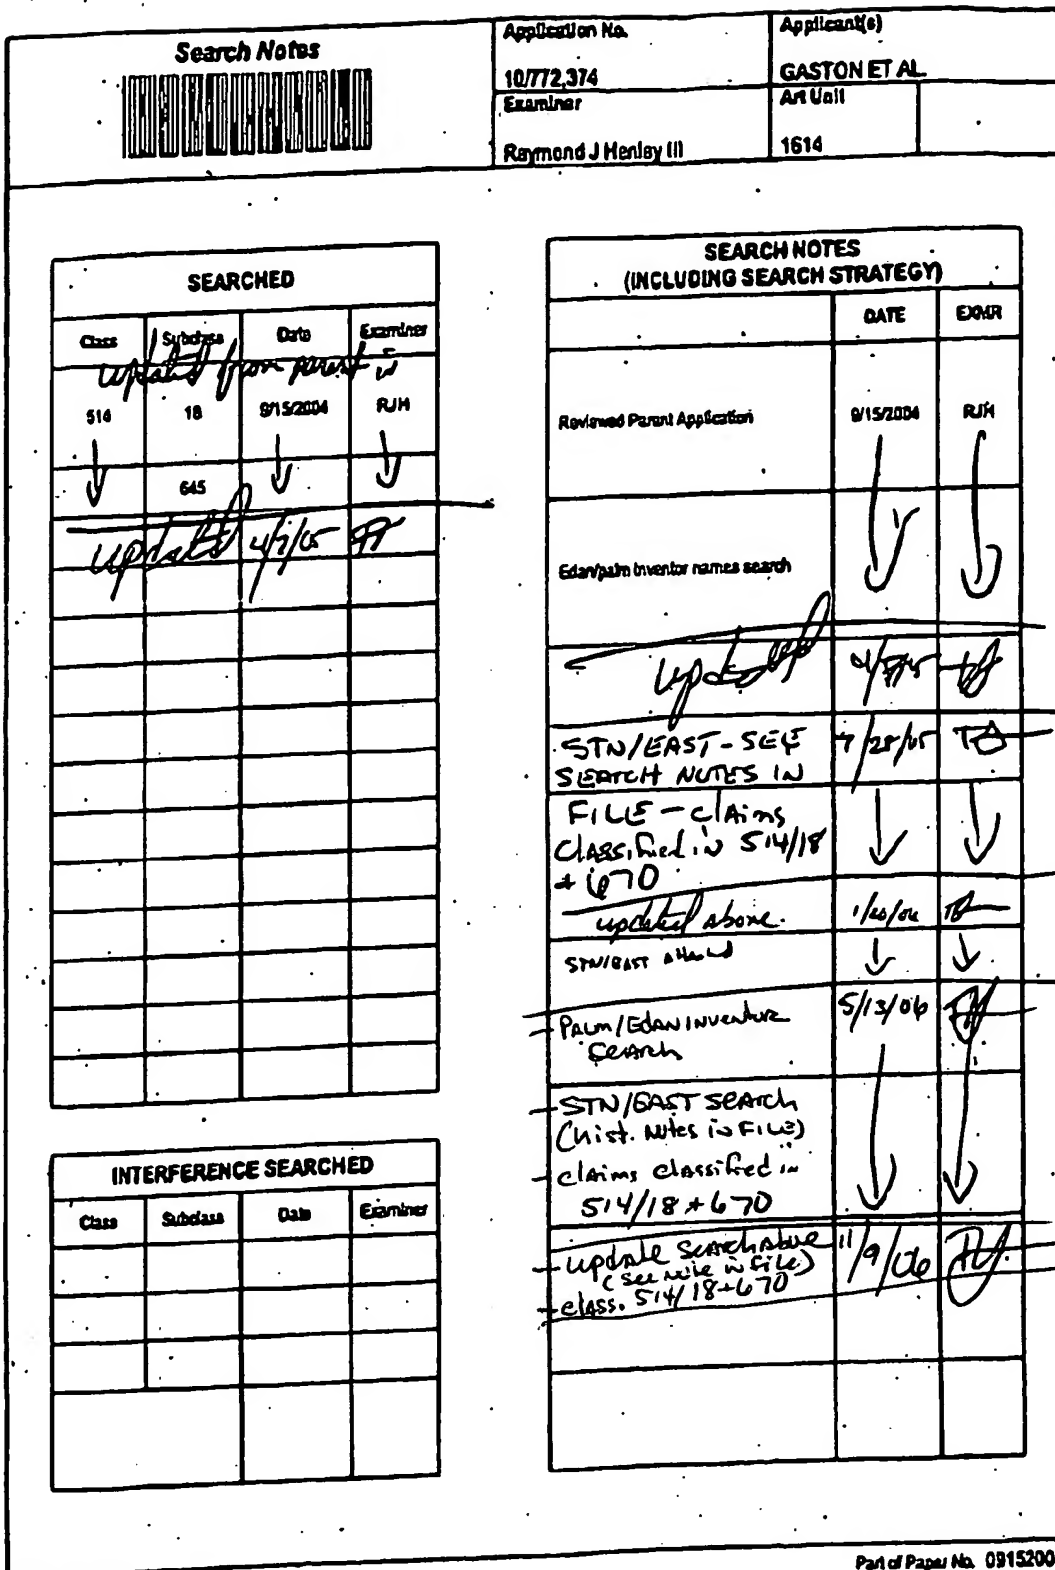 Search Notes
Application No.
10/772,374
Applicant(s)
GASTON ET AL.
Examiner
Raymond J Henley III
Art Unit
1614
SEARCHED
Class Subclass Date Examiner
updated from parent in
514 18 9/15/2004 RJH
645
updated 4/7/05
INTERFERENCE SEARCHED
Class Subclass Date Examiner
SEARCH NOTES
(INCLUDING SEARCH STRATEGY)
DATE EXMR
Reviewed Parent Application 9/15/2004 RJH
Edan/palm inventor names search
updated
STN/EAST - SEE 7/28/05
SEARCH NOTES IN
FILE - claims
classified in 514/18
+ 670
updated above.
STN/EAST attached
- PALM/EDAN INVENTOR 5/13/06
Search
- STN/EAST search
(hist. notes in FILE)
- claims classified in
514/18 + 670
- update search above 11/9/06
(see note in file)
- class. 514/18 + 670
Part of Paper No. 0915200